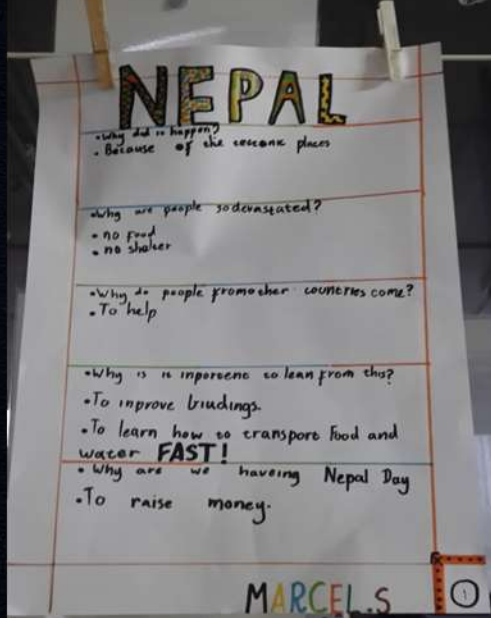 NEPAL
• Why did it happen?
• Because of the tectonic places
• Why are people so devastated?
• no food
• no shelter
• Why do people from other countries come?
• To help
• Why is it inportent to lean from this?
• To inprove biudings.
• To learn how to transport food and
water FAST!
• Why are we haveing Nepal Day
• To raise money.
MARCEL.S
1